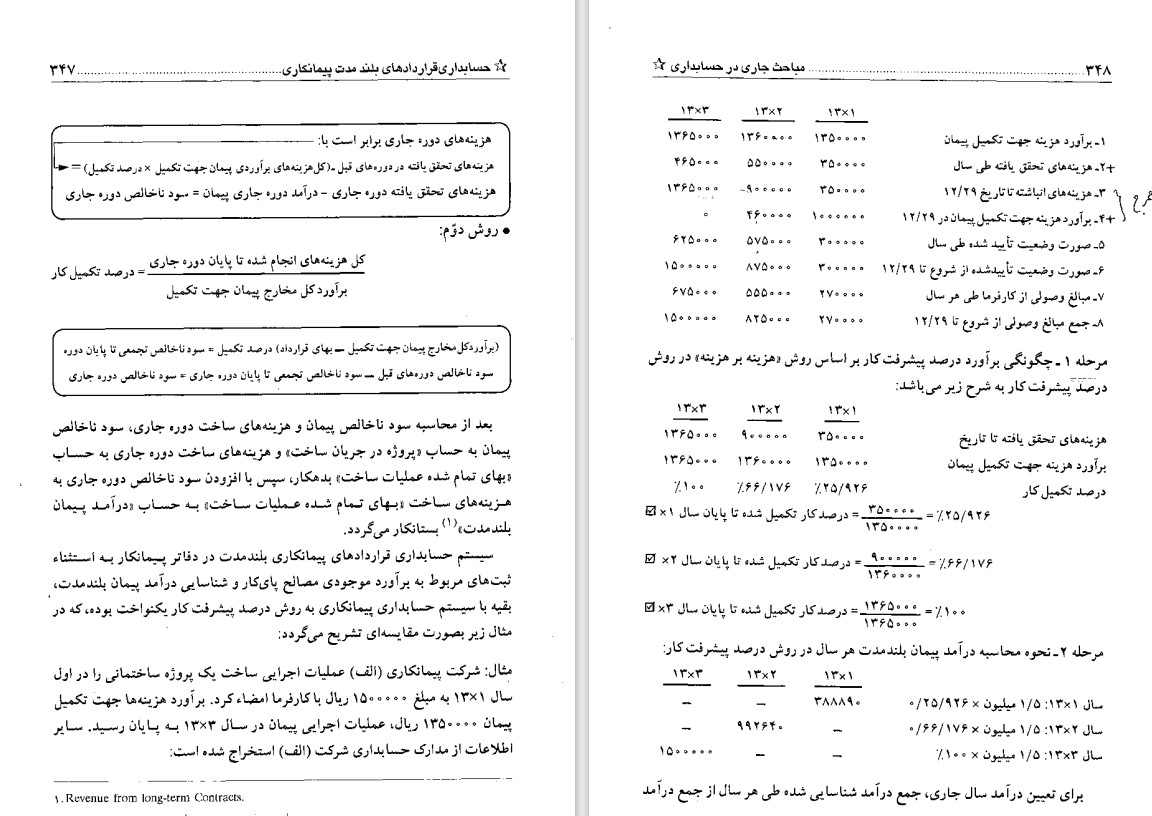 ☆ حسابداری قراردادهای بلند مدت پیمانکاری ........................................ ۳۴۷
هزینه‌های دوره جاری برابر است با:
هزینه‌های تحقق یافته در دوره‌های قبل ـ (کل هزینه‌های برآوردی پیمان جهت تکمیل × درصد تکمیل) =
هزینه‌های تحقق یافته دوره جاری - درآمد دوره جاری پیمان = سود ناخالص دوره جاری
● روش دوّم:
کل هزینه‌های انجام شده تا پایان دوره جاری
= درصد تکمیل کار
برآورد کل مخارج پیمان جهت تکمیل
(برآوردکل مخارج پیمان جهت تکمیل ــ بهای قرارداد) درصد تکمیل = سود ناخالص تجمعی تا پایان دوره
سود ناخالص دوره‌های قبل ــ سود ناخالص تجمعی تا پایان دوره جاری = سود ناخالص دوره جاری
بعد از محاسبه سود ناخالص پیمان و هزینه‌های ساخت دوره جاری، سود ناخالص
پیمان به حساب «پروژه در جریان ساخت» و هزینه‌های ساخت دوره جاری به حساب
«بهای تمام شده عملیات ساخت» بدهکار، سپس با افزودن سود ناخالص دوره جاری به
هزینه‌های ساخت «بهای تمام شده عملیات ساخت» به حساب «درآمد پیمان
بلندمدت»(۱) بستانکار می‌گردد.
سیستم حسابداری قراردادهای پیمانکاری بلندمدت در دفاتر پیمانکار به استثناء
ثبت‌های مربوط به برآورد موجودی مصالح پای‌کار و شناسایی درآمد پیمان بلندمدت،
بقیه با سیستم حسابداری پیمانکاری به روش درصد پیشرفت کار یکنواخت بوده، که در
مثال زیر بصورت مقایسه‌ای تشریح می‌گردد:
مثال: شرکت پیمانکاری (الف) عملیات اجرایی ساخت یک پروژه ساختمانی را در اول
سال ۱۳×۱ به مبلغ ۱۵۰۰۰۰۰ ریال با کارفرما امضاء کرد. برآورد هزینه‌ها جهت تکمیل
پیمان ۱۳۵۰۰۰۰ ریال، عملیات اجرایی پیمان در سال ۱۳×۳ به پایان رسید. سایر
اطلاعات از مدارک حسابداری شرکت (الف) استخراج شده است:
۱. Revenue from long-term Contracts.
۳۴۸ ........................................ مباحث جاری در حسابداری ☆
۱۳×۱ ۱۳×۲ ۱۳×۳
۱ـ برآورد هزینه جهت تکمیل پیمان ۱۳۵۰۰۰۰ ۱۳۶۰۰۰۰ ۱۳۶۵۰۰۰
+۲ـ هزینه‌های تحقق یافته طی سال ۳۵۰۰۰۰ ۵۵۰۰۰۰ ۴۶۵۰۰۰
۳ـ هزینه‌های انباشته تا تاریخ ۱۲/۲۹ ۳۵۰۰۰۰ ۹۰۰۰۰۰ ۱۳۶۵۰۰۰
+۴ـ برآورد هزینه جهت تکمیل پیمان در ۱۲/۲۹ ۱۰۰۰۰۰۰ ۴۶۰۰۰۰ ۰
۵ـ صورت وضعیت تأیید شده طی سال ۳۰۰۰۰۰ ۵۷۵۰۰۰ ۶۲۵۰۰۰
۶ـ صورت وضعیت تأییدشده از شروع تا ۱۲/۲۹ ۳۰۰۰۰۰ ۸۷۵۰۰۰ ۱۵۰۰۰۰۰
۷ـ مبالغ وصولی از کارفرما طی هر سال ۲۷۰۰۰۰ ۵۵۵۰۰۰ ۶۷۵۰۰۰
۸ـ جمع مبالغ وصولی از شروع تا ۱۲/۲۹ ۲۷۰۰۰۰ ۸۲۵۰۰۰ ۱۵۰۰۰۰۰
مرحله ۱ ـ چگونگی برآورد درصد پیشرفت کار بر اساس روش «هزینه بر هزینه» در روش
درصد پیشرفت کار به شرح زیر می‌باشد:
۱۳×۱ ۱۳×۲ ۱۳×۳
هزینه‌های تحقق یافته تا تاریخ ۳۵۰۰۰۰ ۹۰۰۰۰۰ ۱۳۶۵۰۰۰
برآورد هزینه جهت تکمیل پیمان ۱۳۵۰۰۰۰ ۱۳۶۰۰۰۰ ۱۳۶۵۰۰۰
درصد تکمیل کار ٪۲۵/۹۲۶ ٪۶۶/۱۷۶ ٪۱۰۰
☑ درصد کار تکمیل شده تا پایان سال ×۱ = ۳۵۰۰۰۰ / ۱۳۵۰۰۰۰ = ٪۲۵/۹۲۶
☑ درصد کار تکمیل شده تا پایان سال ×۲ = ۹۰۰۰۰۰ / ۱۳۶۰۰۰۰ = ٪۶۶/۱۷۶
☑ درصد کار تکمیل شده تا پایان سال ×۳ = ۱۳۶۵۰۰۰ / ۱۳۶۵۰۰۰ = ٪۱۰۰
مرحله ۲ ـ نحوه محاسبه درآمد پیمان بلندمدت هر سال در روش درصد پیشرفت کار:
۱۳×۱ ۱۳×۲ ۱۳×۳
سال ۱۳×۱: ۱/۵ میلیون × ۰/۲۵/۹۲۶ ۳۸۸۸۹۰ – –
سال ۱۳×۲: ۱/۵ میلیون × ۰/۶۶/۱۷۶ – ۹۹۲۶۴۰ –
سال ۱۳×۳: ۱/۵ میلیون × ۱۰۰٪ – – ۱۵۰۰۰۰۰
برای تعیین درآمد سال جاری، جمع درآمد شناسایی شده طی هر سال از جمع درآمد